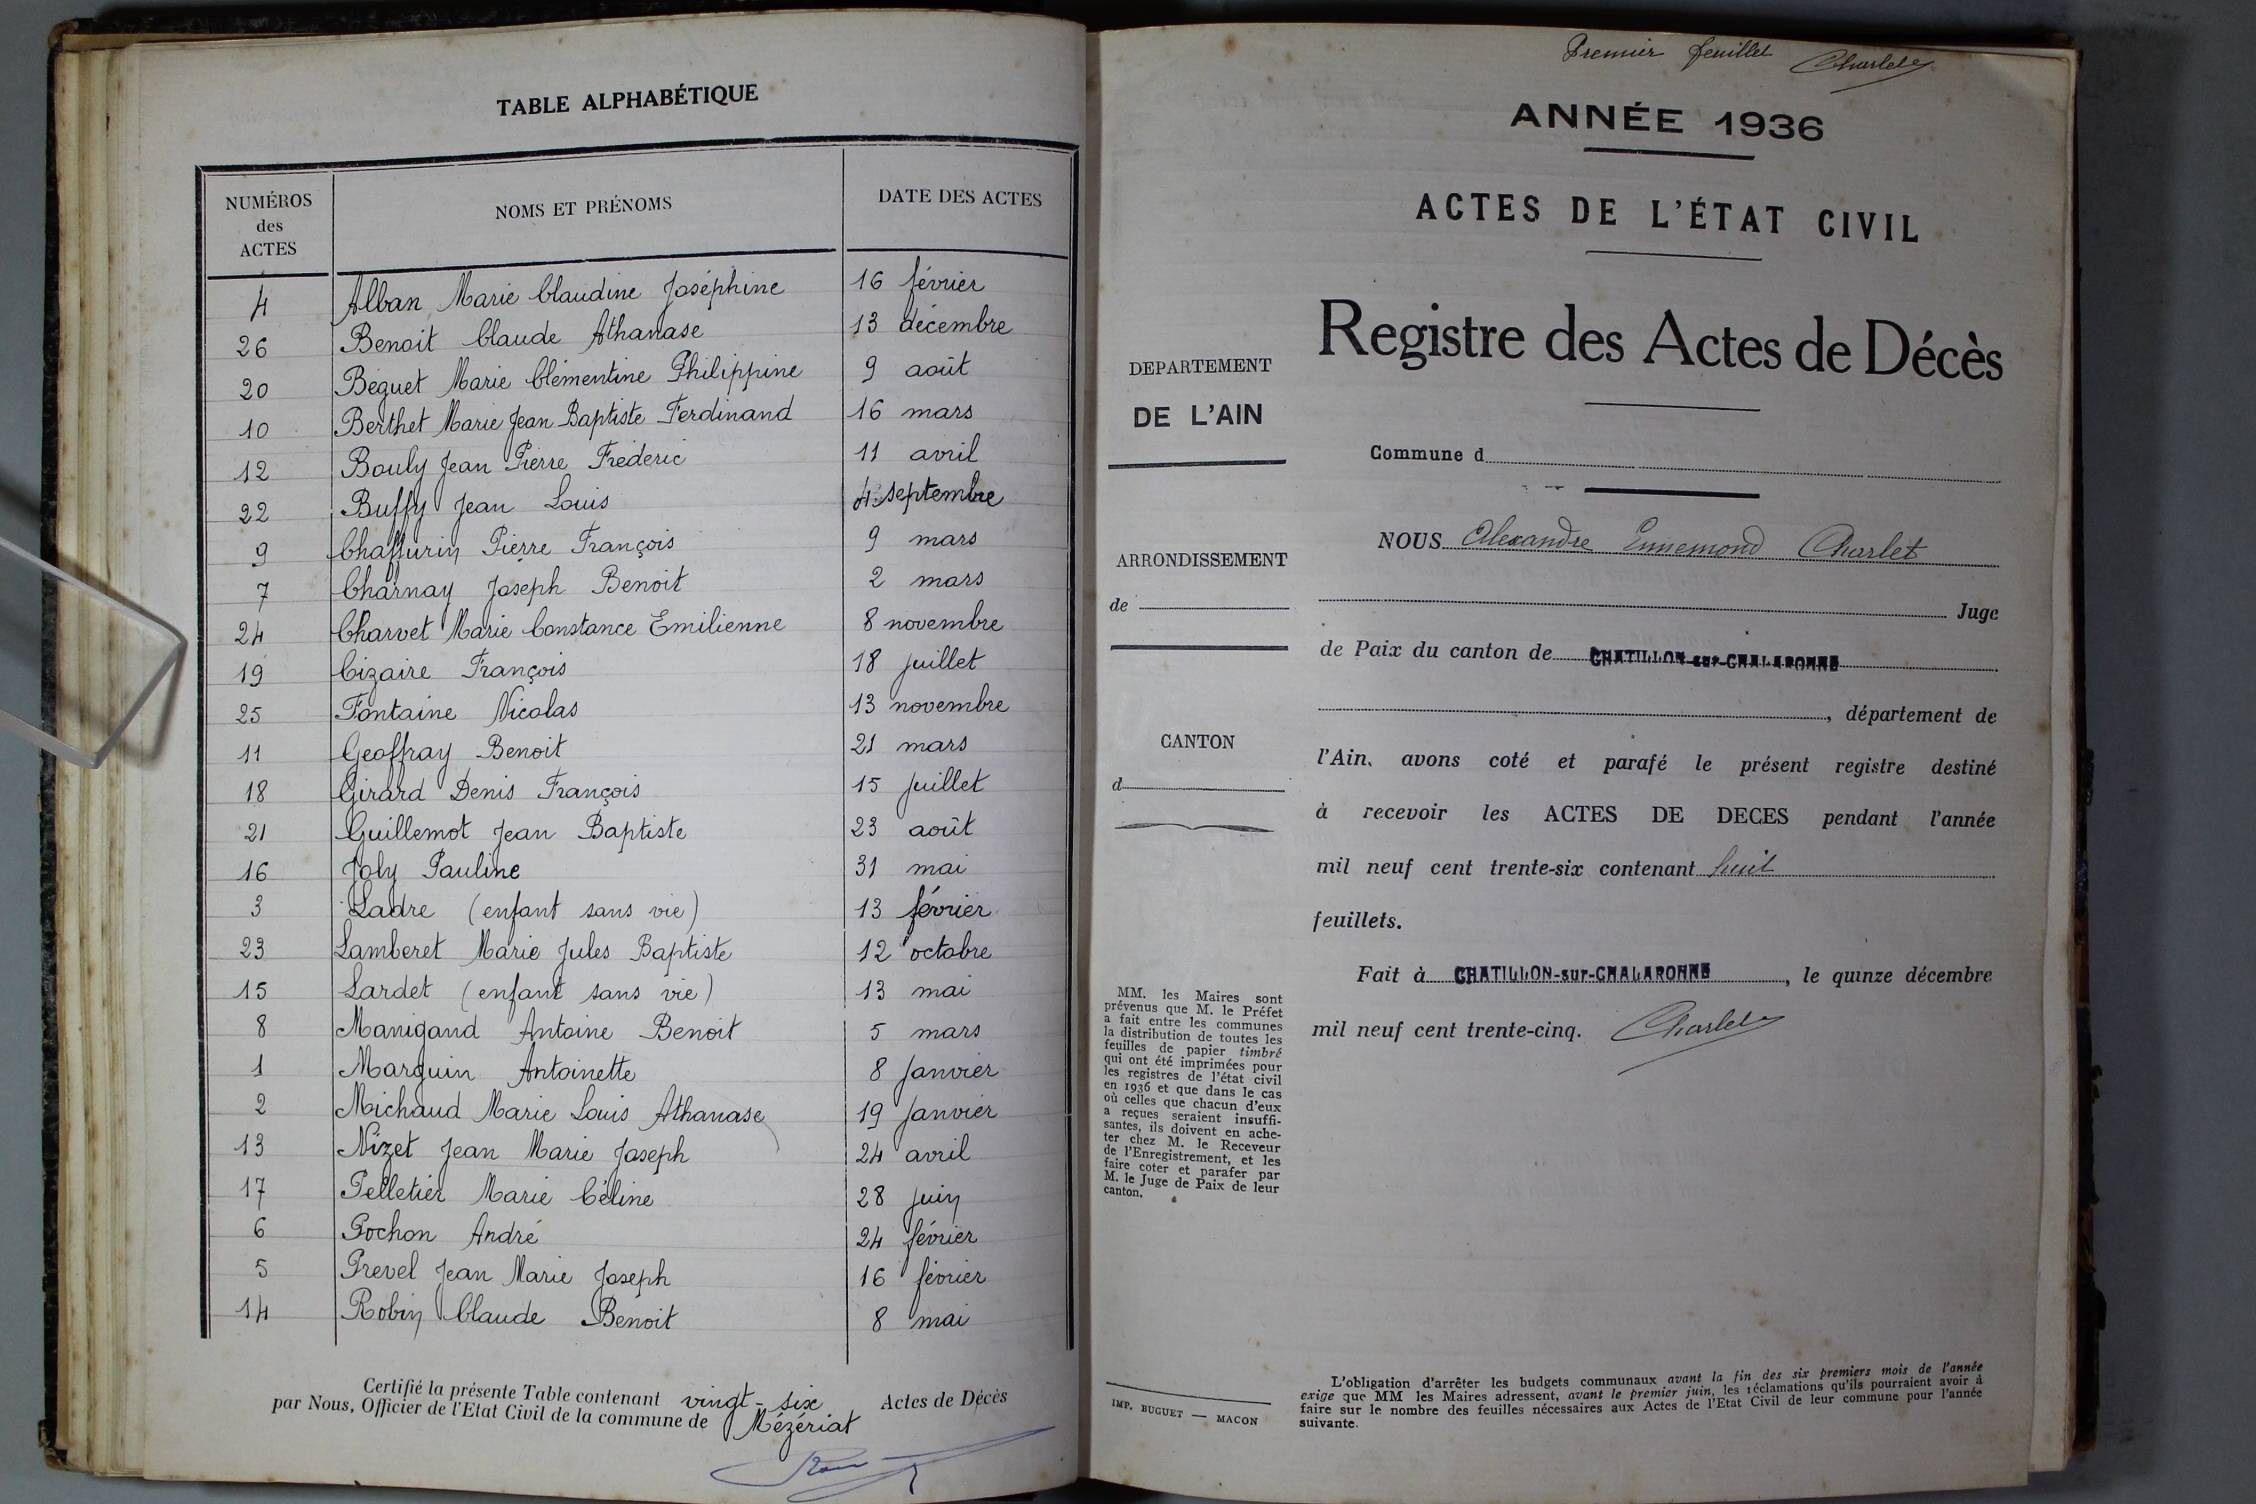 TABLE ALPHABÉTIQUE
NUMÉROS des ACTES NOMS ET PRÉNOMS DATE DES ACTES
4 Alban Marie Claudine Joséphine 16 février
26 Benoit Claude Athanase 13 décembre
20 Béguet Marie Clémentine Philippine 9 août
10 Berthet Marie Jean Baptiste Ferdinand 16 mars
12 Bouly Jean Pierre Frédéric 11 avril
22 Buffy Jean Louis 4 septembre
9 Chaffurin Pierre François 9 mars
7 Charnay Joseph Benoit 2 mars
24 Charvet Marie Constance Emilienne 8 novembre
19 Cizaire François 18 juillet
25 Fontaine Nicolas 13 novembre
11 Geoffray Benoit 21 mars
18 Girard Denis François 15 juillet
21 Guillemot Jean Baptiste 23 août
16 Joly Pauline 31 mai
3 Ladre (enfant sans vie) 13 février
23 Lamberet Marie Jules Baptiste 12 octobre
15 Lardet (enfant sans vie) 13 mai
8 Manigand Antoine Benoit 5 mars
1 Marguin Antoinette 8 Janvier
2 Michaud Marie Louis Athanase 19 Janvier
13 Nizet Jean Marie Joseph 24 avril
17 Pelletier Marie Céline 28 juin
6 Pochon André 24 février
5 Prevel Jean Marie Joseph 16 février
14 Robin Claude Benoit 8 mai
Certifié la présente Table contenant vingt-six Actes de Décès
par Nous, Officier de l'Etat Civil de la commune de Mézériat
Premier feuillet Charlet
ANNÉE 1936
ACTES DE L'ÉTAT CIVIL
Registre des Actes de Décès
DEPARTEMENT
DE L'AIN
ARRONDISSEMENT
de
CANTON
d
MM. les Maires sont
prévenus que M. le Préfet
a fait entre les communes
la distribution de toutes les
feuilles de papier timbré
qui ont été imprimées pour
les registres de l'état civil
en 1936 et que dans le cas
où celles que chacun d'eux
a reçues seraient insuffi-
santes, ils doivent en ache-
ter chez M. le Receveur
de l'Enregistrement, et les
faire coter et parafer par
M. le Juge de Paix de leur
canton.
IMP. BUGUET — MACON
Commune d
NOUS Alexandre Ennemond Charlet
Juge
de Paix du canton de CHATILLON-sur-CHALARONNE
, département de
l'Ain, avons coté et parafé le présent registre destiné
à recevoir les ACTES DE DECES pendant l'année
mil neuf cent trente-six contenant huit
feuillets.
Fait à CHATILLON-sur-CHALARONNE, le quinze décembre
mil neuf cent trente-cinq. Charlet
L'obligation d'arrêter les budgets communaux avant la fin des six premiers mois de l'année
exige que MM les Maires adressent, avant le premier juin, les réclamations qu'ils pourraient avoir à
faire sur le nombre des feuilles nécessaires aux Actes de l'Etat Civil de leur commune pour l'année
suivante.